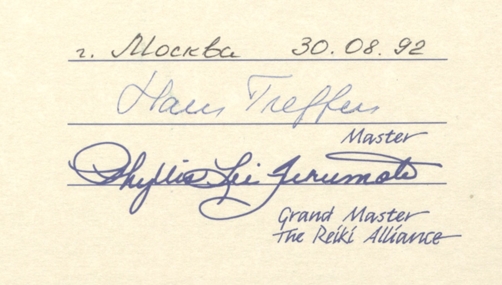 г. Москва 30.08.92
Hans Treffen
Master
Phyllis Lei Furumoto
Grand Master
The Reiki Alliance